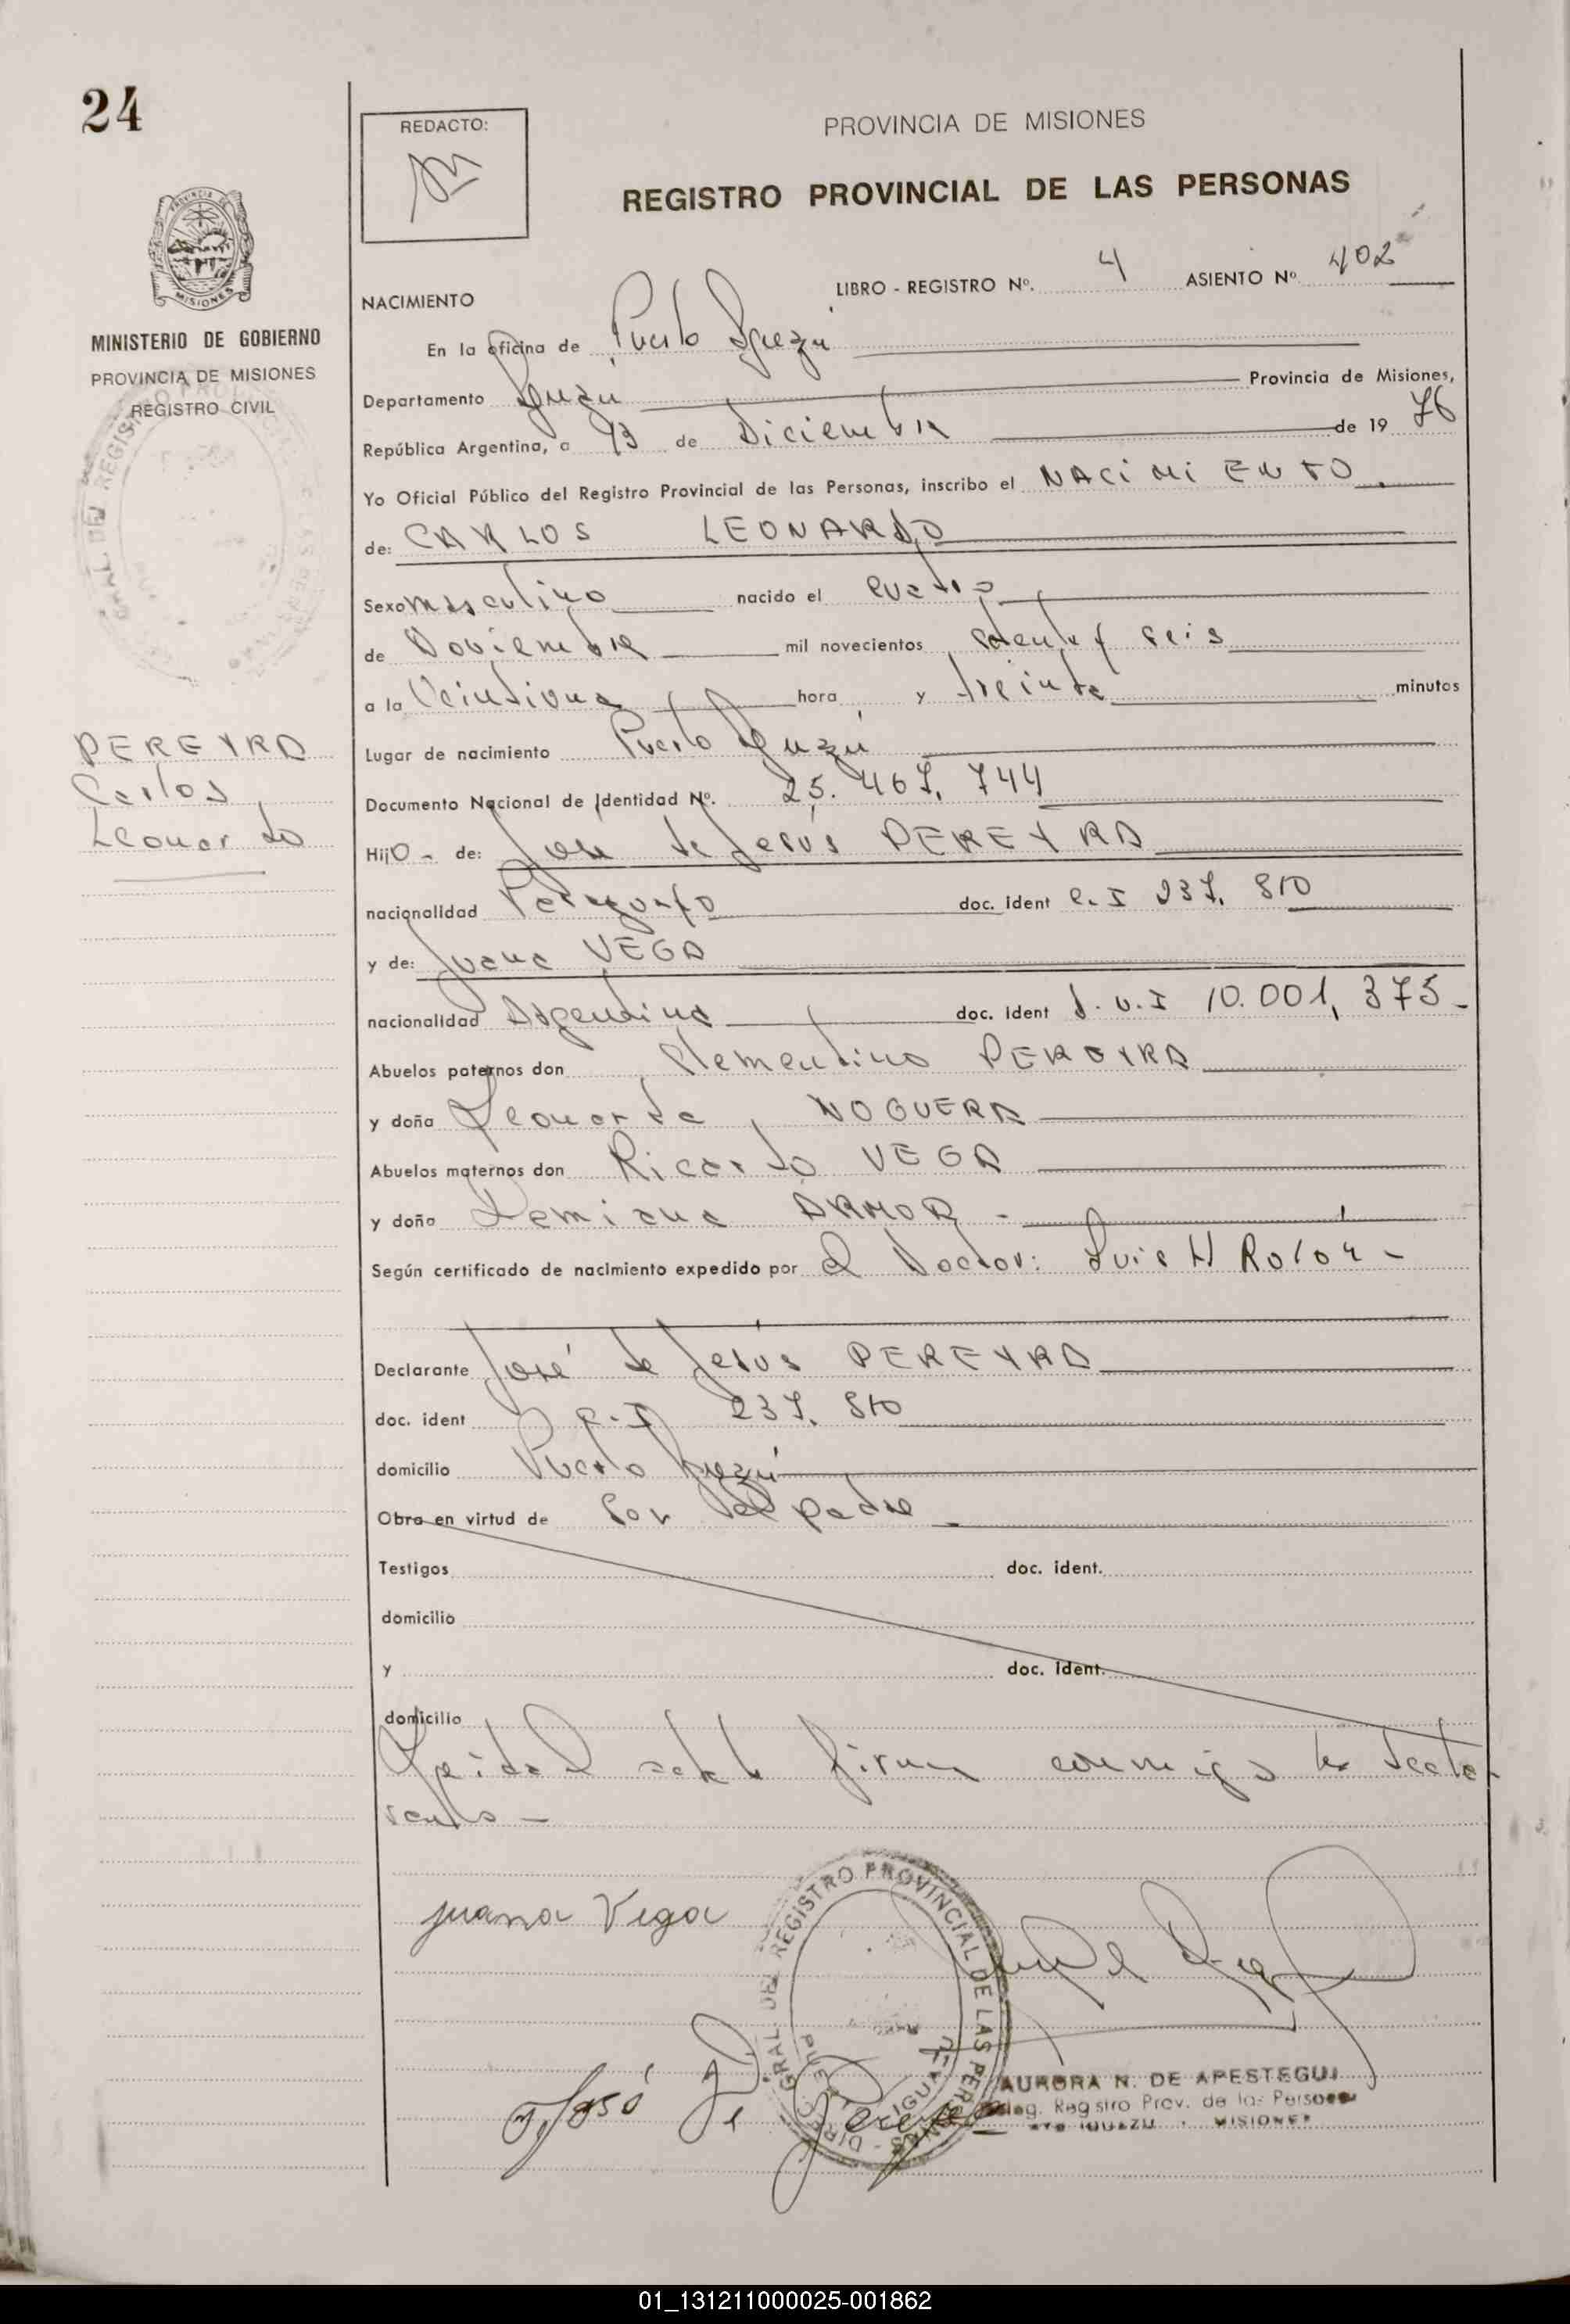 24
REDACTO:
PROVINCIA DE MISIONES
REGISTRO PROVINCIAL DE LAS PERSONAS
MISIONES
MINISTERIO DE GOBIERNO
PROVINCIA DE MISIONES
REGISTRO CIVIL
LIBRO - REGISTRO Nº. 4 ASIENTO Nº 402
NACIMIENTO
En la oficina de Puerto Iguazú
Departamento Iguazú Provincia de Misiones,
República Argentina, a 13 de Diciembre de 19 76
Yo Oficial Público del Registro Provincial de las Personas, inscribo el NACIMIENTO
de: CARLOS LEONARDO
Sexo masculino nacido el cuatro
de Noviembre mil novecientos setenta y seis
a la Veintiuna hora y treinta minutos
PEREYRA
Carlos
Leonardo
Lugar de nacimiento Puerto Iguazú
Documento Nacional de Identidad Nº. 25.467.744
Hijo - de: José de Jesús PEREYRA
nacionalidad Paraguayo doc. ident C.I 237.810
y de: Juana VEGA
nacionalidad Argentina doc. ident D.N.I 10.001.375-
Abuelos paternos don Clementino PEREYRA
y doña Leonarda NOGUERA
Abuelos maternos don Ricardo VEGA
y doña Damiana -
Según certificado de nacimiento expedido por el Doctor: Luis H Rolón -
Declarante José de Jesús PEREYRA
doc. ident C.I 237.810
domicilio Puerto Iguazú
Obra en virtud de Ser el padre
Testigos doc. ident.
domicilio
y doc. ident.
domicilio
Leida el acta firman conmigo los
juana Vega
DIREC. GRAL. DEL REGISTRO PROVINCIAL DE LAS PERSONAS
José De Pereyra
AURORA N. DE APESTEGUI
Deleg. Registro Prov. de las Personas
PTO IGUAZU - MISIONES
01_131211000025-001862